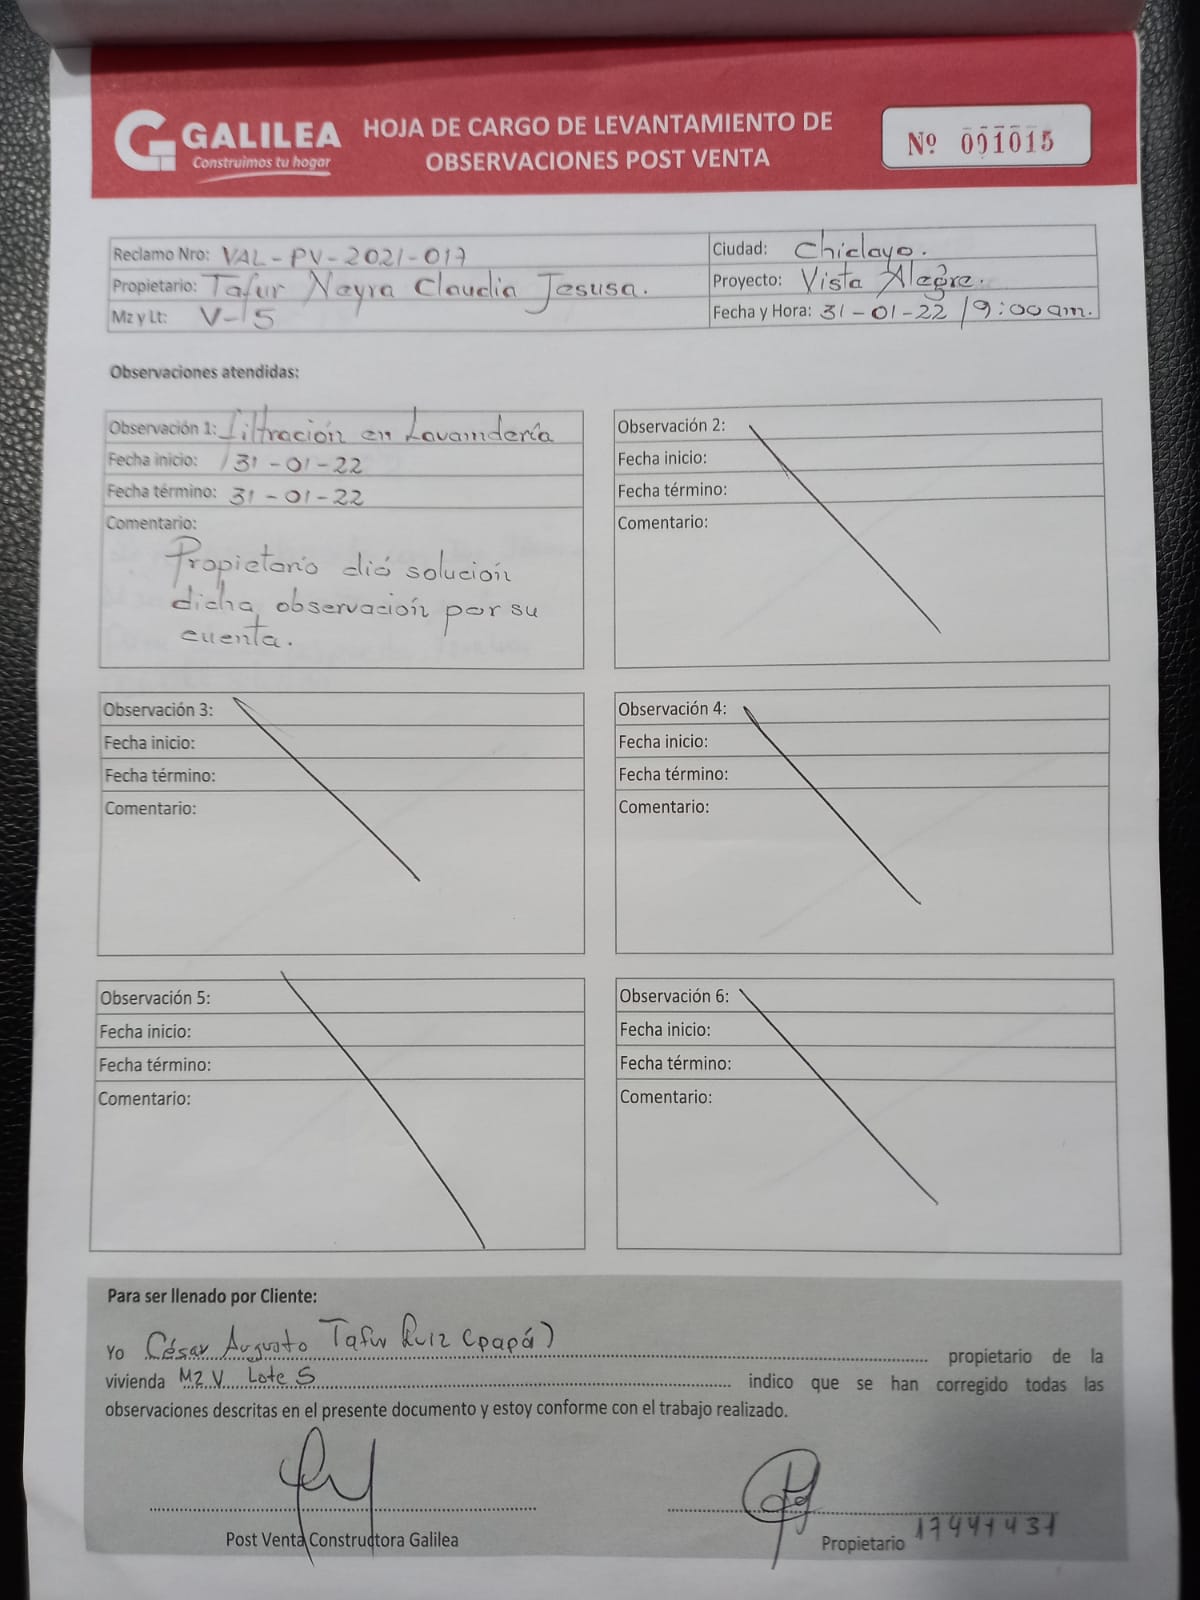 GALILEA
Construimos tu hogar
HOJA DE CARGO DE LEVANTAMIENTO DE
OBSERVACIONES POST VENTA
Nº 001015
Reclamo Nro: VAL-PV-2021-017
Ciudad: Chiclayo.
Propietario: Tafur Neyra Claudia Jesusa.
Proyecto: Vista Alegre.
Mz y Lt: V-15
Fecha y Hora: 31-01-22 / 9:00am.
Observaciones atendidas:
Observación 1: filtración en Lavandería
Fecha inicio: 31-01-22
Fecha término: 31-01-22
Comentario:
Propietario dió solución
dicha observación por su
cuenta.
Observación 2:
Fecha inicio:
Fecha término:
Comentario:
Observación 3:
Fecha inicio:
Fecha término:
Comentario:
Observación 4:
Fecha inicio:
Fecha término:
Comentario:
Observación 5:
Fecha inicio:
Fecha término:
Comentario:
Observación 6:
Fecha inicio:
Fecha término:
Comentario:
Para ser llenado por Cliente:
Yo César Augusto Tafur Ruiz (papá) propietario de la
vivienda MZ V Lote 5 indico que se han corregido todas las
observaciones descritas en el presente documento y estoy conforme con el trabajo realizado.
Post Venta Constructora Galilea
Propietario 17441437